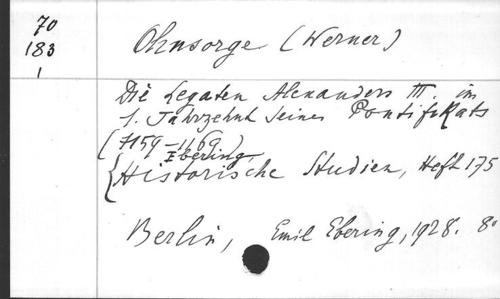 70
183
1
Ohnsorge (Werner)
Die Legaten Alexanders III. im
1. Jahrzehnt seines Pontifikats
(1159-1169)
Ebering,
Historische Studien, Heft 175
Berlin, Emil Ebering, 1928. 8°